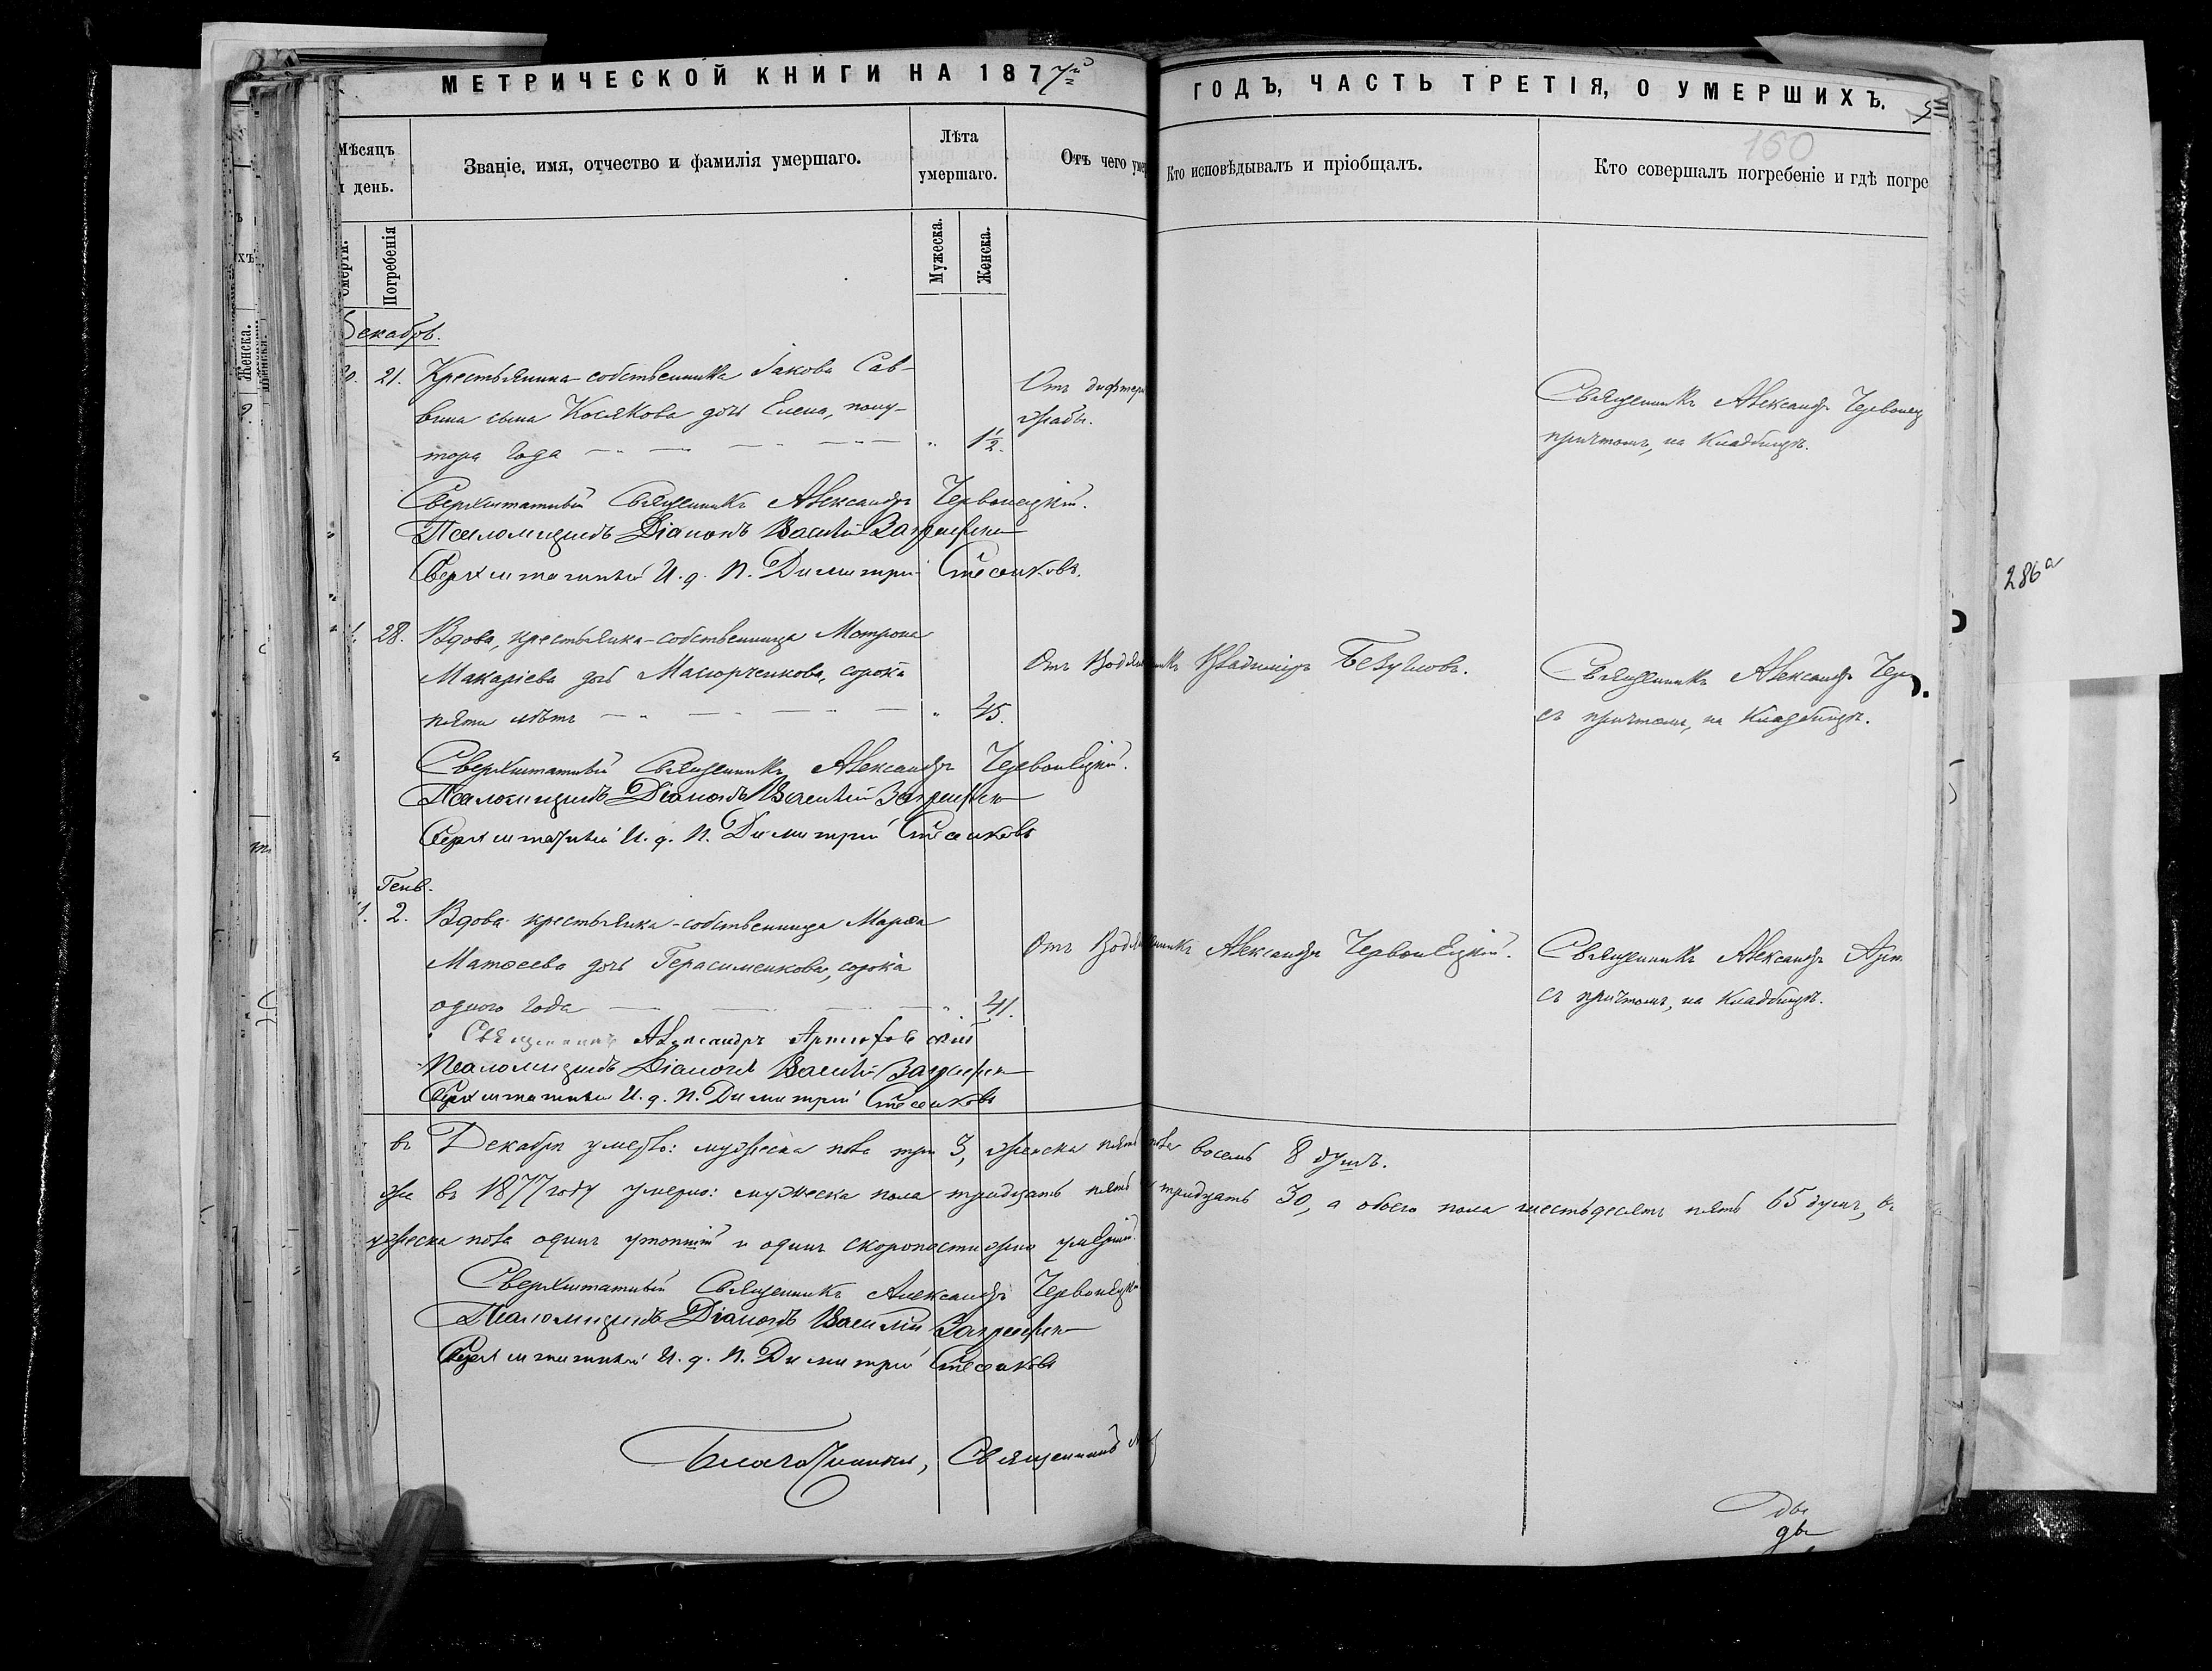 МЕТРИЧЕСКОЙ КНИГИ НА 1877й
ГОДЪ, ЧАСТЬ ТРЕТІЯ, О УМЕРШИХЪ.
150
Мѣсяцъ
и день.
Званіе, имя, отчество и фамилія умершаго.
Лѣта
умершаго.
Отъ чего умер
Кто исповѣдывалъ и пріобщалъ.
Кто совершалъ погребеніе и гдѣ погре
смерти.
Погребенія
Мужеска.
Женска.
Декабрь.
21. Крестьянина-собственника Іакова Сав-
вина сына Косякова дочь Елена, полу-
тора года 1½.
Отъ дифтери
жабы.
Священникъ Александръ Червонец
причтомъ, на кладбищѣ.
Сверхштатный Священникъ Александръ Червонецкій.
Псаломщикъ Діаконъ Василій
Сверхштатный И. д. П. Димитрій
28. Вдова, крестьянка-собственница Мотрона
Макаріева дочь Масюрченкова, сорока
пяти лѣтъ 45.
Отъ водя
никъ Владиміръ Безуглов.
Священникъ Александръ Чер
съ причтомъ, на кладбищѣ.
Сверхштатный Священникъ Александръ Червонецкій.
Псаломщикъ Діаконъ Василій
Сверхштатный И. д. П. Димитрій
Генв.
2. Вдова крестьянка-собственница Марѳа
Матѳеева дочь Герасименкова, сорока
одного года 41.
Отъ водя
никъ Александръ Червонецкій.
Священникъ Александръ Арт
съ причтомъ, на кладбищѣ.
Священникъ Александръ
Псаломщикъ Діаконъ Василій
Сверхштатный И. д. П. Димитрій
въ Декабрѣ умерло: мужеска пола три 3, женска пять
пола восемь 8 душъ.
же въ 1877 году умерло: мужеска пола тридцать пять
тридцать 30, а обоего пола шестьдесятъ пять 65 душъ, въ
ужеска пола одинъ утопшій и одинъ скоропостижно умершій.
Сверхштатный Священникъ Александръ Червонецкі
Псаломщикъ Діаконъ Василій
Сверхштатный И. д. П. Димитрій
Благочинный, Священникъ
286а